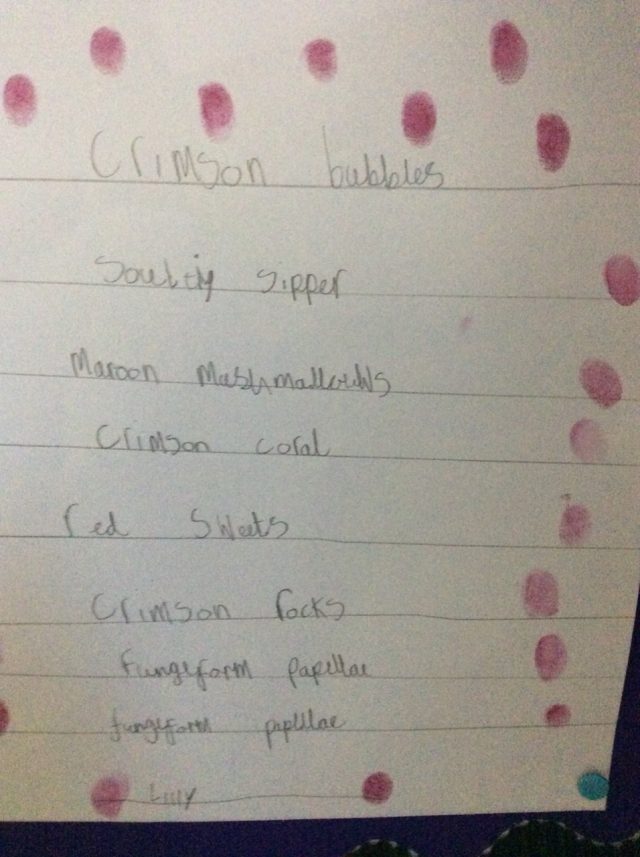 Crimson bubbles
Soultiy sipper
Maroon Mashmallows
Crimson coral
red sweets
Crimson rocks
fungyform papillae
fungyform paplilae
Lilly